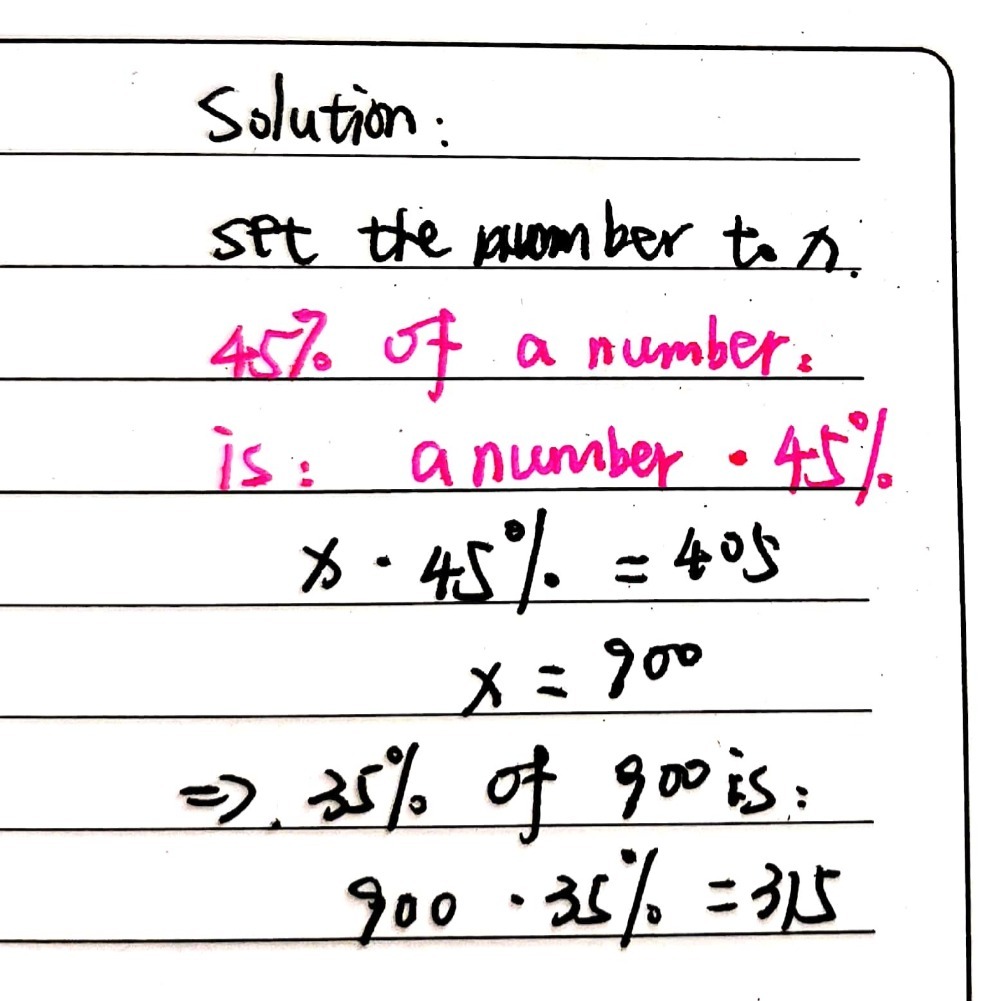 Solution:
set the number to x.
45% of a number.
is: a number · 45%
x · 45% = 405
x = 900
⇒. 35% of 900 is:
900 · 35% = 315